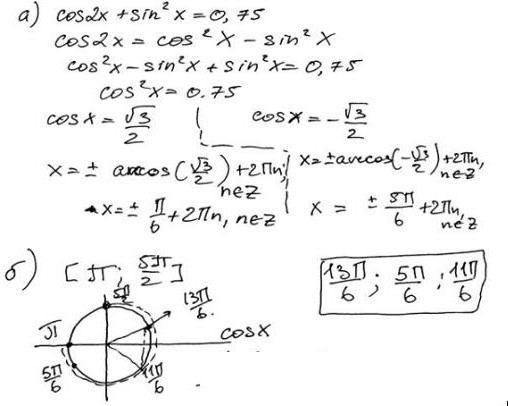 а) cos2x + sin²x = 0,75
cos2x = cos²x - sin²x
cos²x - sin²x + sin²x = 0,75
cos²x = 0.75
cosx = √3/2
x = ± arccos(√3/2) + 2πn, n∈Z
x = ± π/6 + 2πn, n∈Z
cosx = -√3/2
x = ± arccos(-√3/2) + 2πn, n∈Z
x = ± 5π/6 + 2πn, n∈Z
б) [π; 5π/2]
5π/2
13π/6
π
cosx
5π/6
11π/6
13π/6; 5π/6; 11π/6